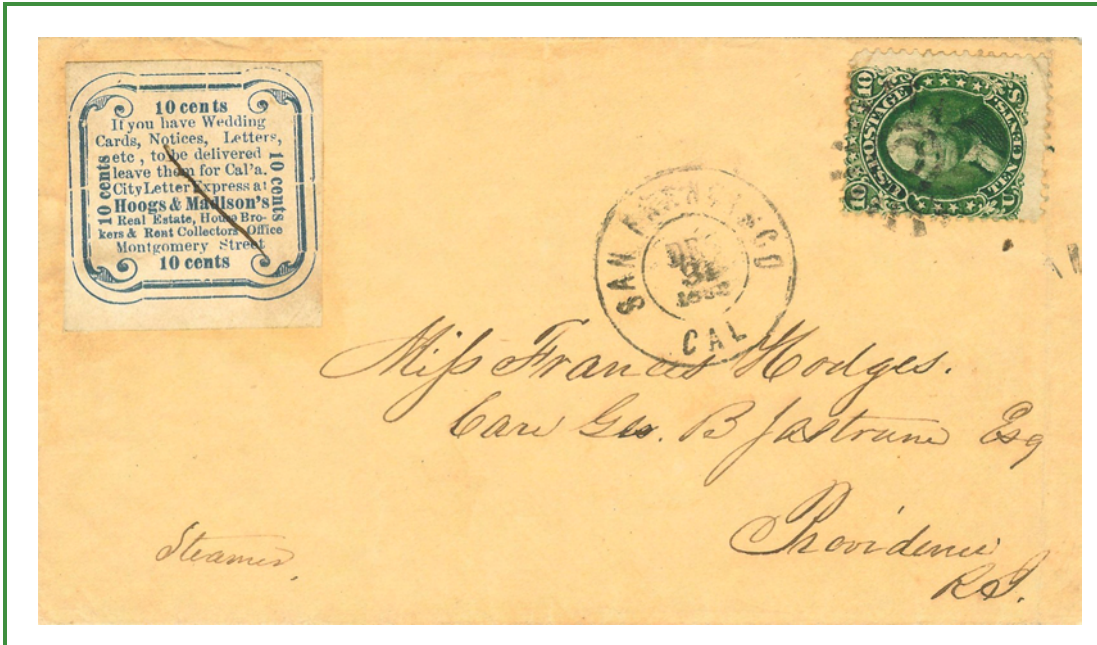 10 cents
If you have Wedding
Cards, Notices, Letters,
etc, to be delivered
leave them for Cal'a.
City Letter Express at
Hoogs & Madison's
Real Estate, House Bro-
kers & Rent Collectors Office
Montgomery Street
10 cents
10 cents
10 cents
U.S. POSTAGE
TEN
10
10
SAN FRANCISCO
DEC
31
CAL
Miss Frances Hodges.
Care Geo. B Jastrum Esq
Providence
R.I.
Steamer,